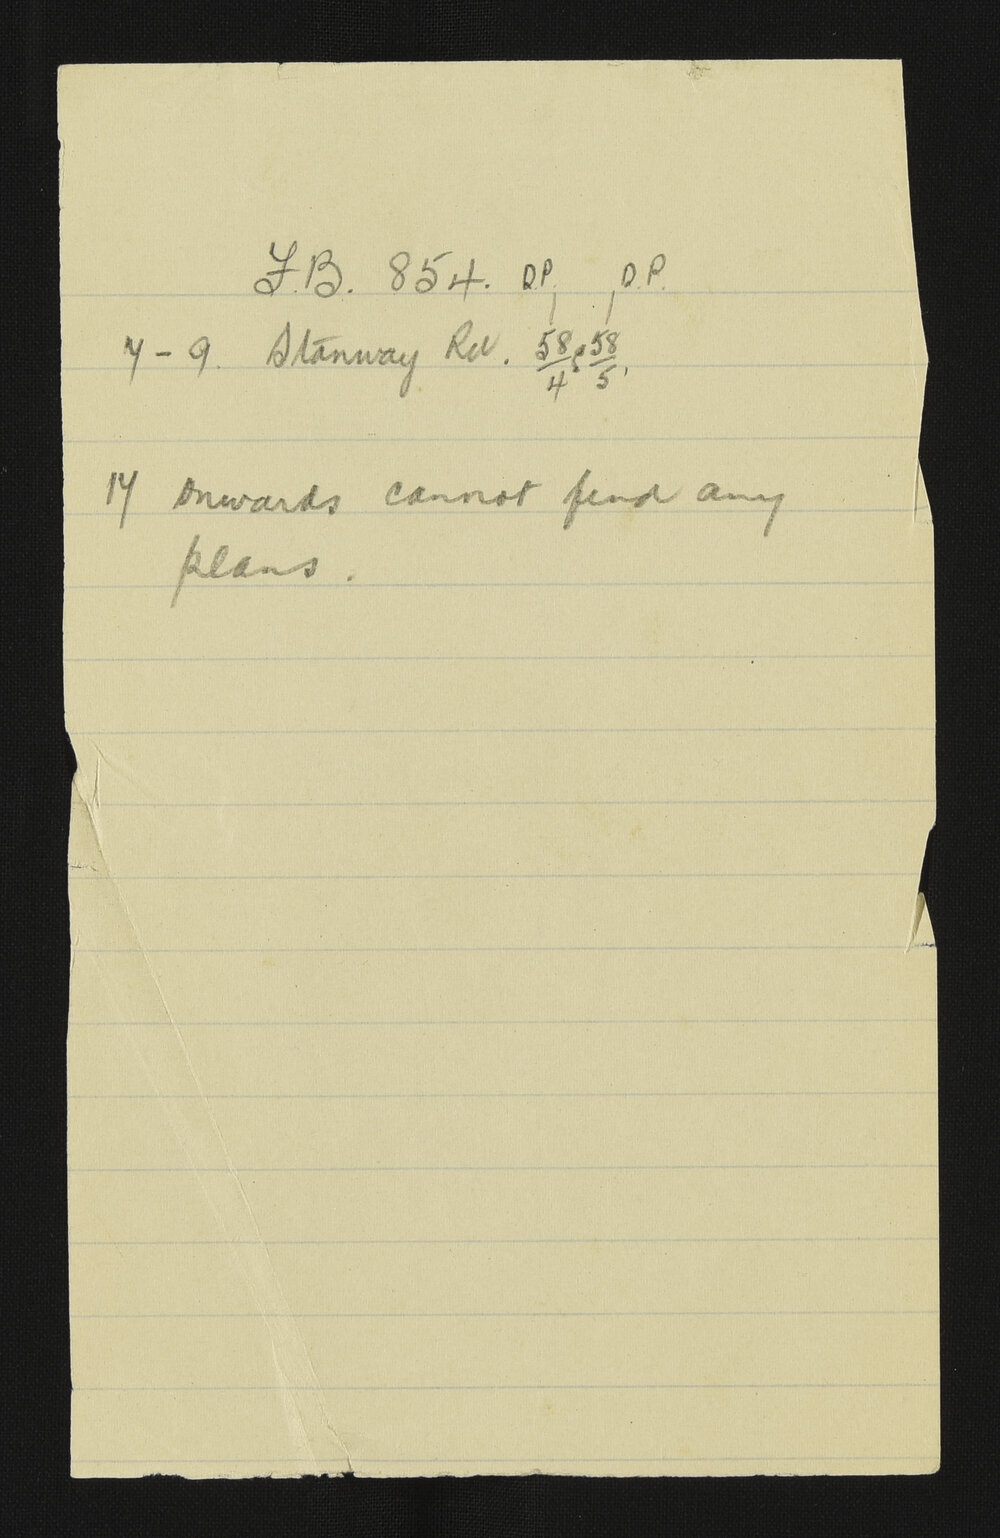 F.B. 854. D.P. D.P.
7 - 9. Stanway Rd. 58/4 & 58/5,
17 onwards cannot find any
plans.